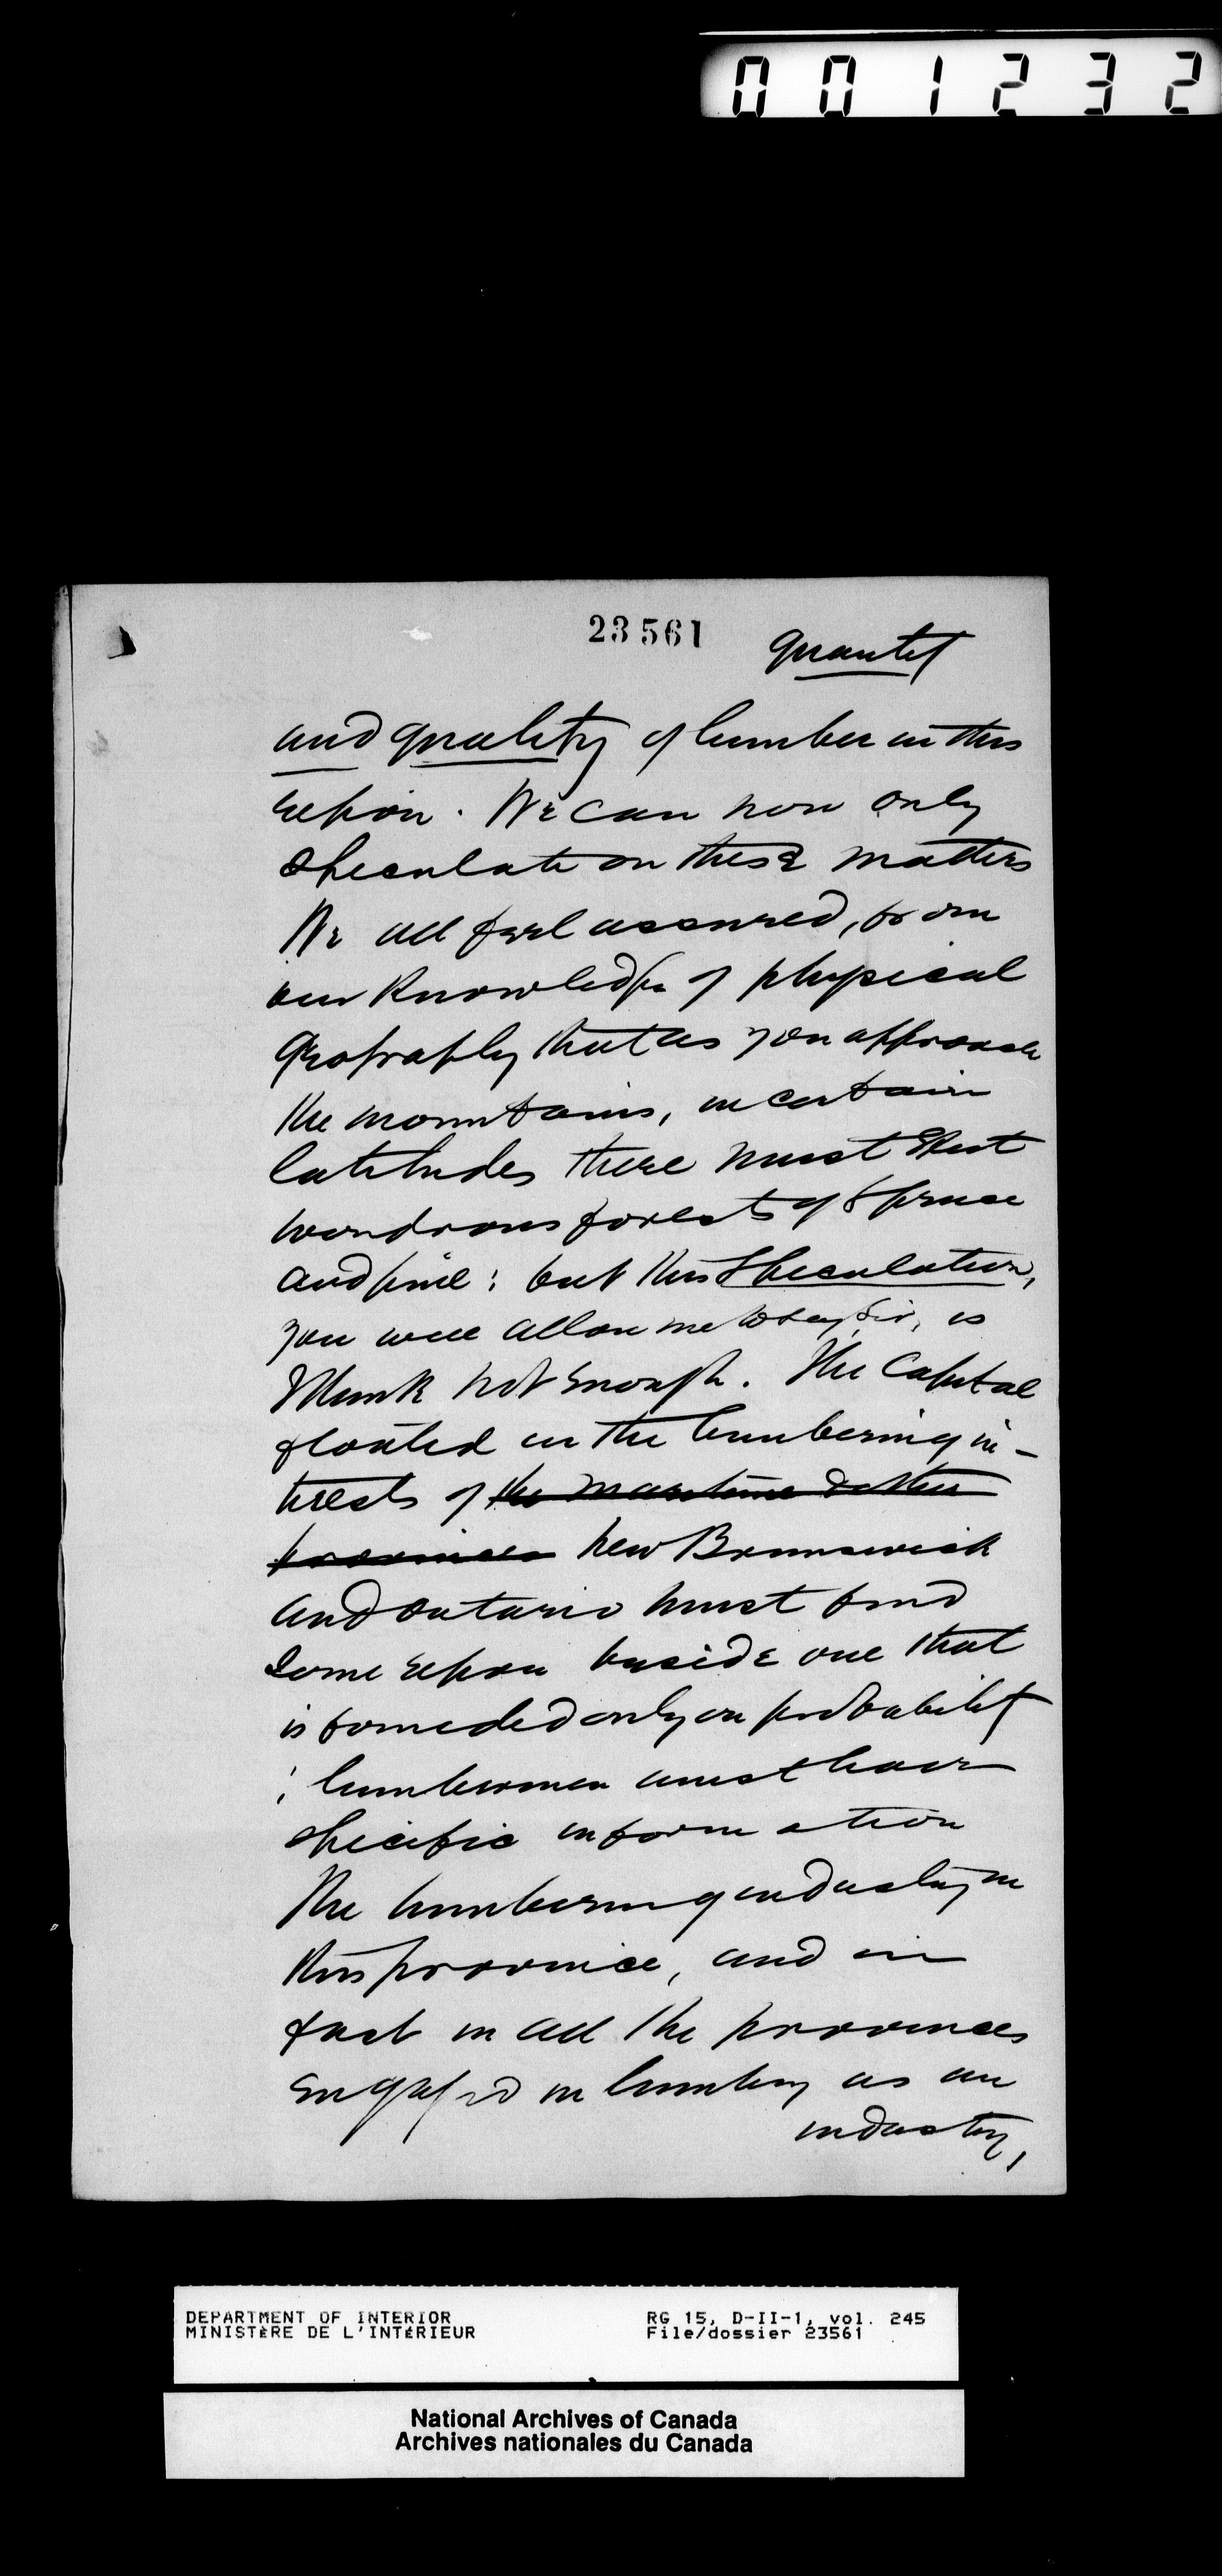 001232
23561
quantity
and quality of lumber in this
region. We can now only
speculate on these matters
We all feel assured, from
our knowledge of physical
Geography that as you approach
the mountains, in certain
latitudes there must exist
wondrous forests of spruce
and pine; but this speculation,
you will allow me to say, Sir, is
think not enough. The Capital
floated in the lumbering in-
terests of the maritime & other
provinces New Brunswick
and Ontario must find
some region beside one that
is founded only on probability
; lumbermen must have
specific information
The lumbering industry in
this province, and in
fact in all the provinces
engaged in lumber as an
industry,
DEPARTMENT OF INTERIOR
MINISTÈRE DE L'INTÉRIEUR
RG 15, D-II-1, vol. 245
File/dossier 23561
National Archives of Canada
Archives nationales du Canada